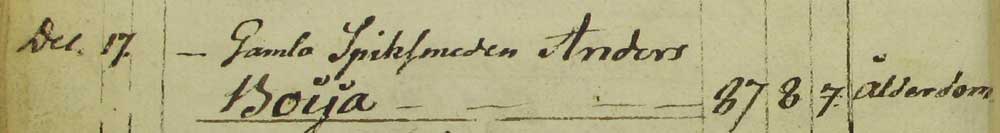 Dec. 17. – Gamla Spiksmeden Anders
Boija – – – – 87 8 7. Ålderdom